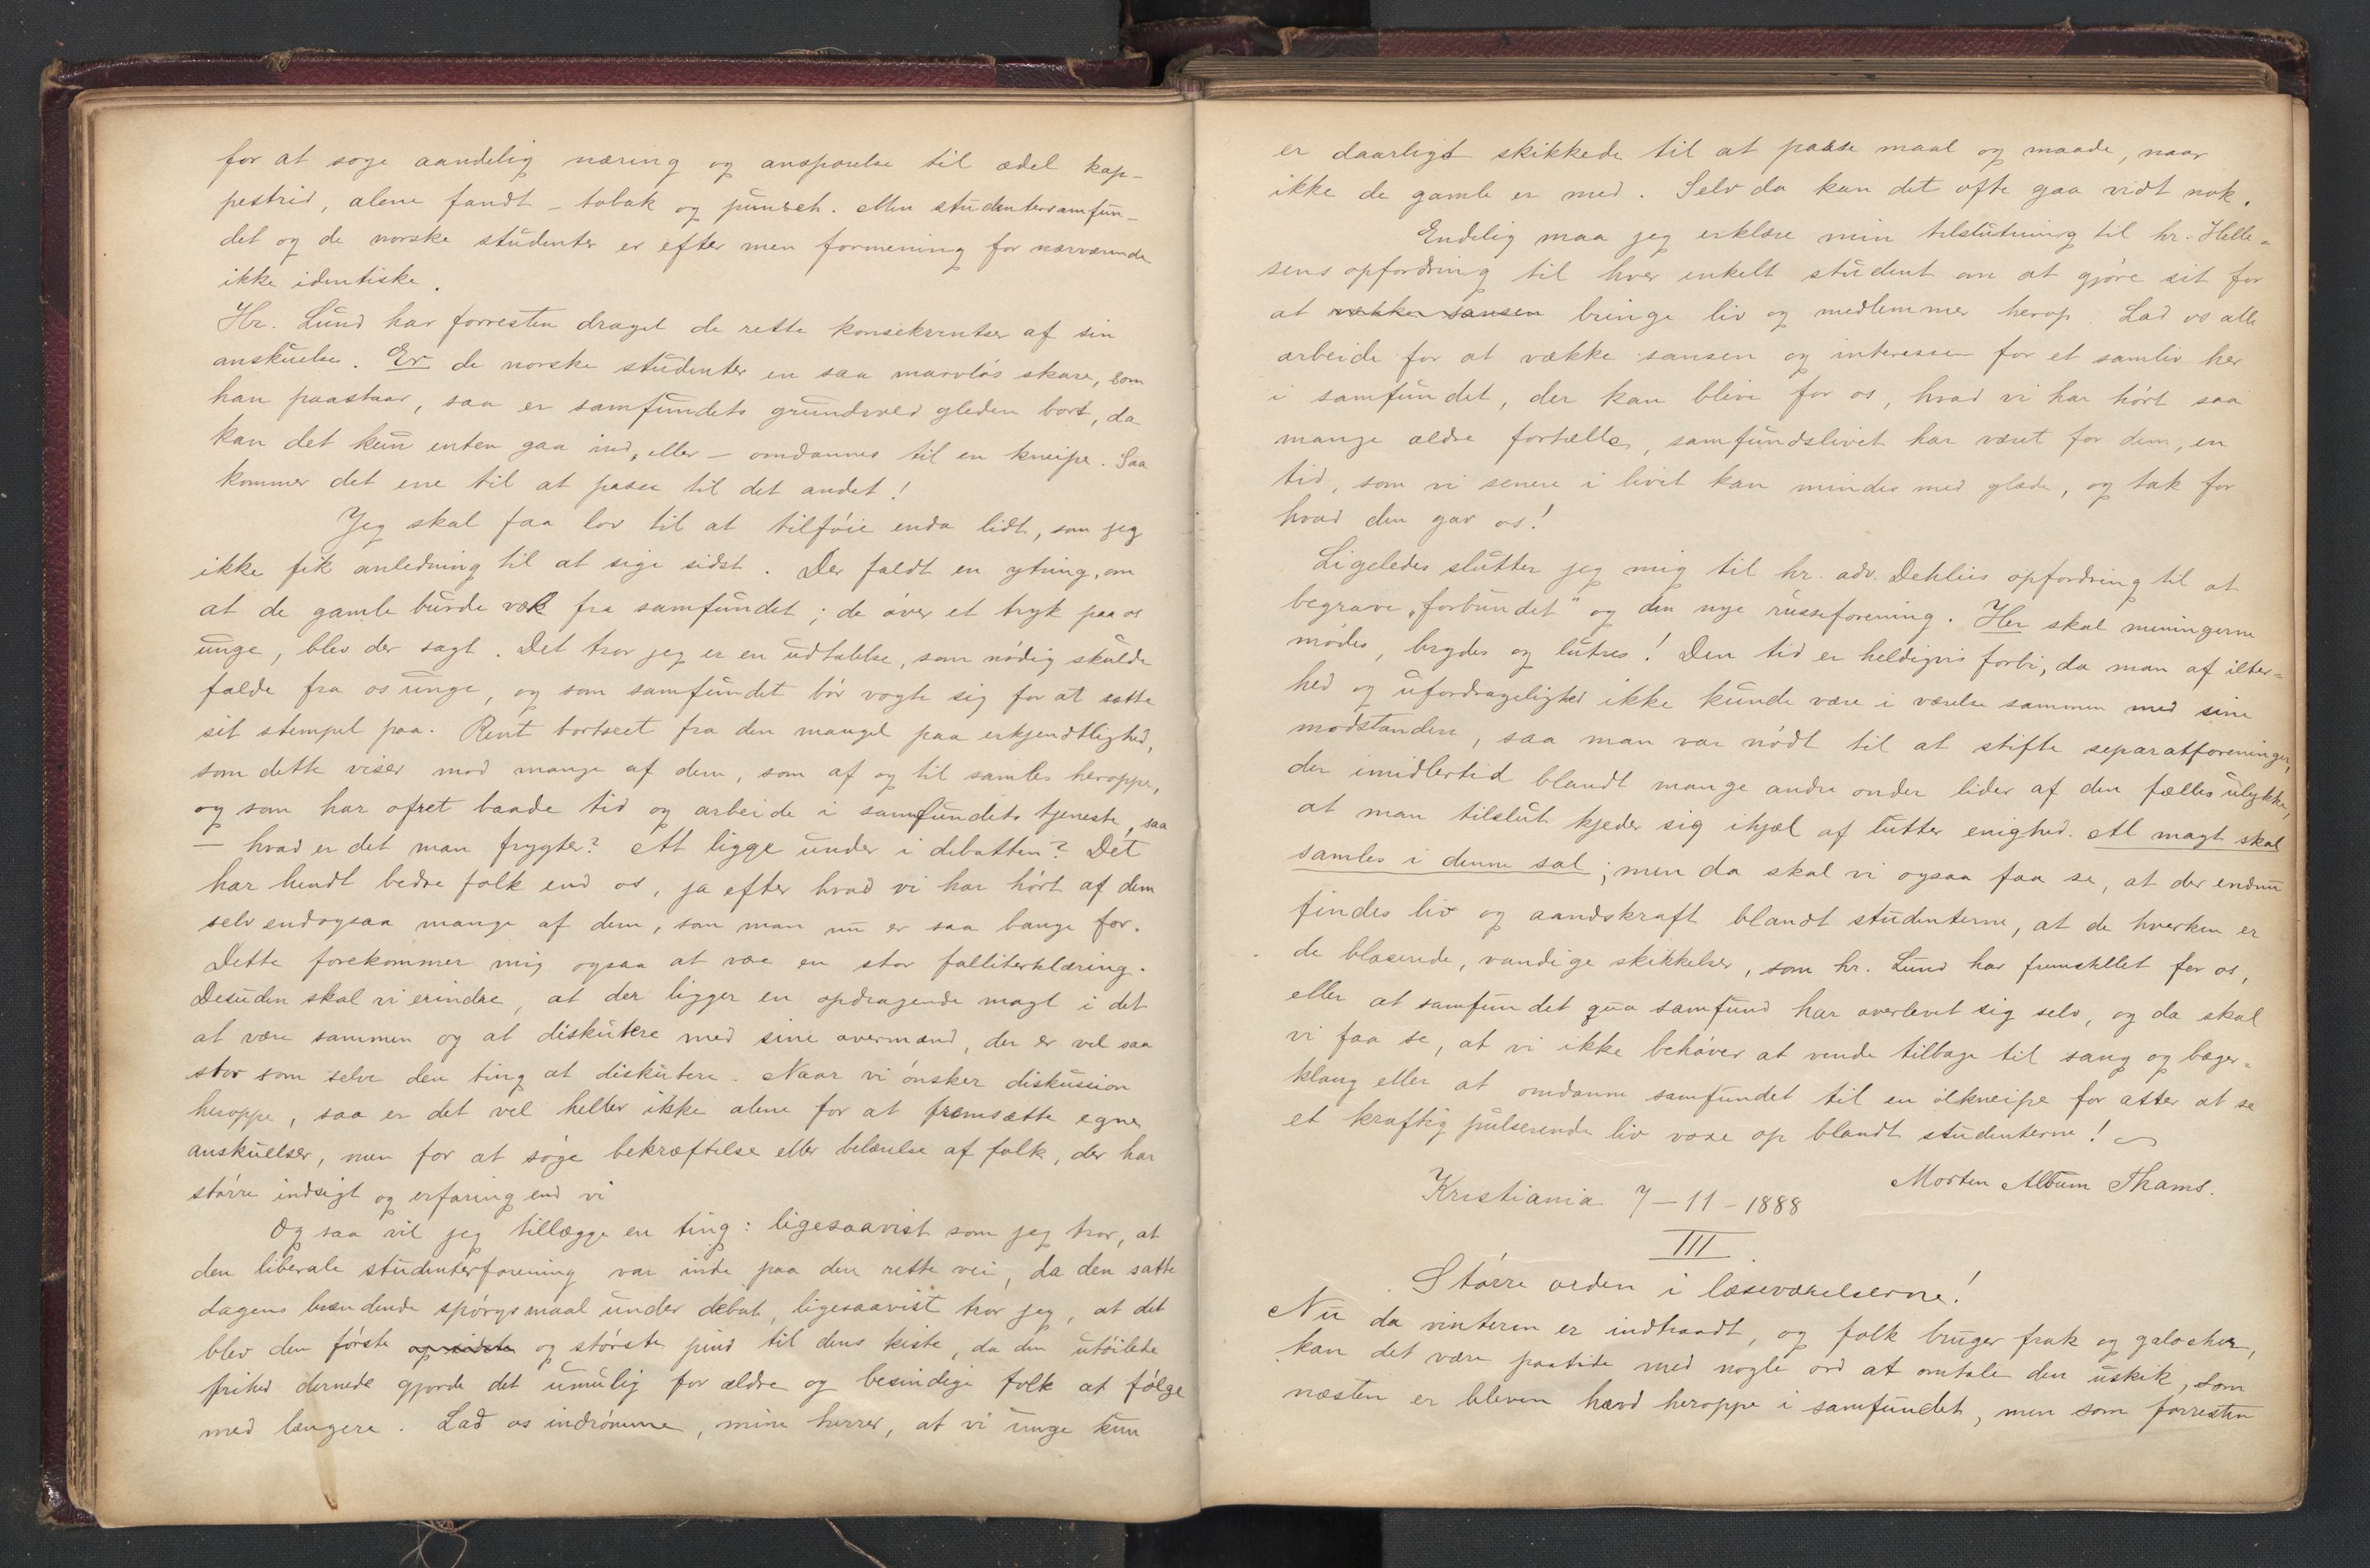 for at søge aandelig næring og ansporelse til ædel kap-
pestrid, alene fandt – tobak og punsch. Men studentersamfun-
det og de norske studenter er efter men formening for nærværende
ikke identiske.
Hr. Lund har forresten draget de rette konsekventser af sin
anskuelse. Er de norske studenter en saa marvløs skare, som
han paastaar, saa er samfundets grundvold gleden bort, da
kan det kun enten gaa ind, eller – omdannes til en kneipe. Saa
kommer det ene til at passe til det andet!
Jeg skal faa lov til at tilføie enda lidt, som jeg
ikke fik anledning til at sige sidst. Der faldt en ytring, om
at de gamle burde væk fra samfundet; de øver et tryk paa os
unge, blev der sagt. Det tror jeg er en udtalelse, som nødig skulde
falde fra os unge, og som samfundet bør vogte sig for at sætte
sit stempel paa. Rent bortseet fra den mangel paa erkjendtlighed,
som dette viser mod mange af dem, som af og til samles heroppe,
og som har ofret baade tid og arbeide i samfundets tjeneste, saa
– hvad er det man frygter? At ligge under i debatten? Det
har hendt bedre folk end os, ja efter hvad vi har hørt af dem
selv endogsaa mange af dem, som man nu er saa bange for.
Dette forekommer mig ogsaa at være en stor falliterklæring.
Desuden skal vi erindre, at der ligger en opdragende magt i det
at være sammen og at diskutere med sine overmænd, der er vel saa
stor som selve den ting at diskutere. Naar vi ønsker diskussion
heroppe, saa er det vel heller ikke alene for at fremsætte egne
anskuelser, men for at søge bekræftelse eller belærelse af folk, der har
større indsigt og erfaring end vi
Og saa vil jeg tillægge en ting: ligesaavist som jeg tror, at
den liberale studenterforening var inde paa den rette vei, da den satte
dagens brændende spørgsmaal under debat, ligesaavist tror jeg, at det
blev den første og sidste og største pind til dens kiste, da den utøilede
frihed dernede gjorde det umulig for ældre og besindige folk at følge
med længere. Lad os indrømme, mine herrer, at vi unge kun
er daarligt skikkede til at passe maal og maade, naar
ikke de gamle er med. Selv da kan det ofte gaa vidt nok.
Endelig maa jeg erklære min tilslutning til hr. Helle-
sens opfordring til hver enkelt student om at gjøre sit for
at vække sansen bringe liv og medlemmer herop. Lad os alle
arbeide for at vække sansen og interessen for et samliv her
i samfundet, der kan blive for os, hvad vi har hørt saa
mange ældre fortælle, samfundslivet har været for dem, en
tid, som vi senere i livet kan mindes med glæde, og tak for
hvad den gav os!
Ligeledes slutter jeg mig til hr. adv. Dehlis opfordring til at
begrave „forbundet” og den nye russeforening. Her skal meningerne
mødes, brydes og lutres! Den tid er heldigvis forbi, da man af ilter-
hed og ufordragelighed ikke kunde være i værelse sammen med sine
modstandere, saa man var nødt til at stifte separatforeninger,
der imidlertid blandt mange andre onder lider af den fælles ulykke,
at man tilslut kjeder sig ihjæl af lutter enighed. Al magt skal
samles i denne sal; men da skal vi ogsaa faa se, at der endnu
findes liv og aandskraft blandt studenterne, at de hverken er
de blaserede, vandige skikkelser, som hr. Lund har fremstillet for os,
eller at samfundet qua samfund har overlevet sig selv, og da skal
vi faa se, at vi ikke behøver at vende tilbage til sang og bæger-
klang eller at omdanne samfundet til en ølkneipe for atter at se
et kraftig pulserende liv voxe op blandt studenterne!
Morten Album Thams.
Kristiania 7–11–1888
III
Større orden i læseværelserne!
Nu da vinteren er indtraadt, og folk bruger frak og galocher,
kan det være paatide med nogle ord at omtale den uskik, som
næsten er bleven hævd heroppe i samfundet, men som forresten